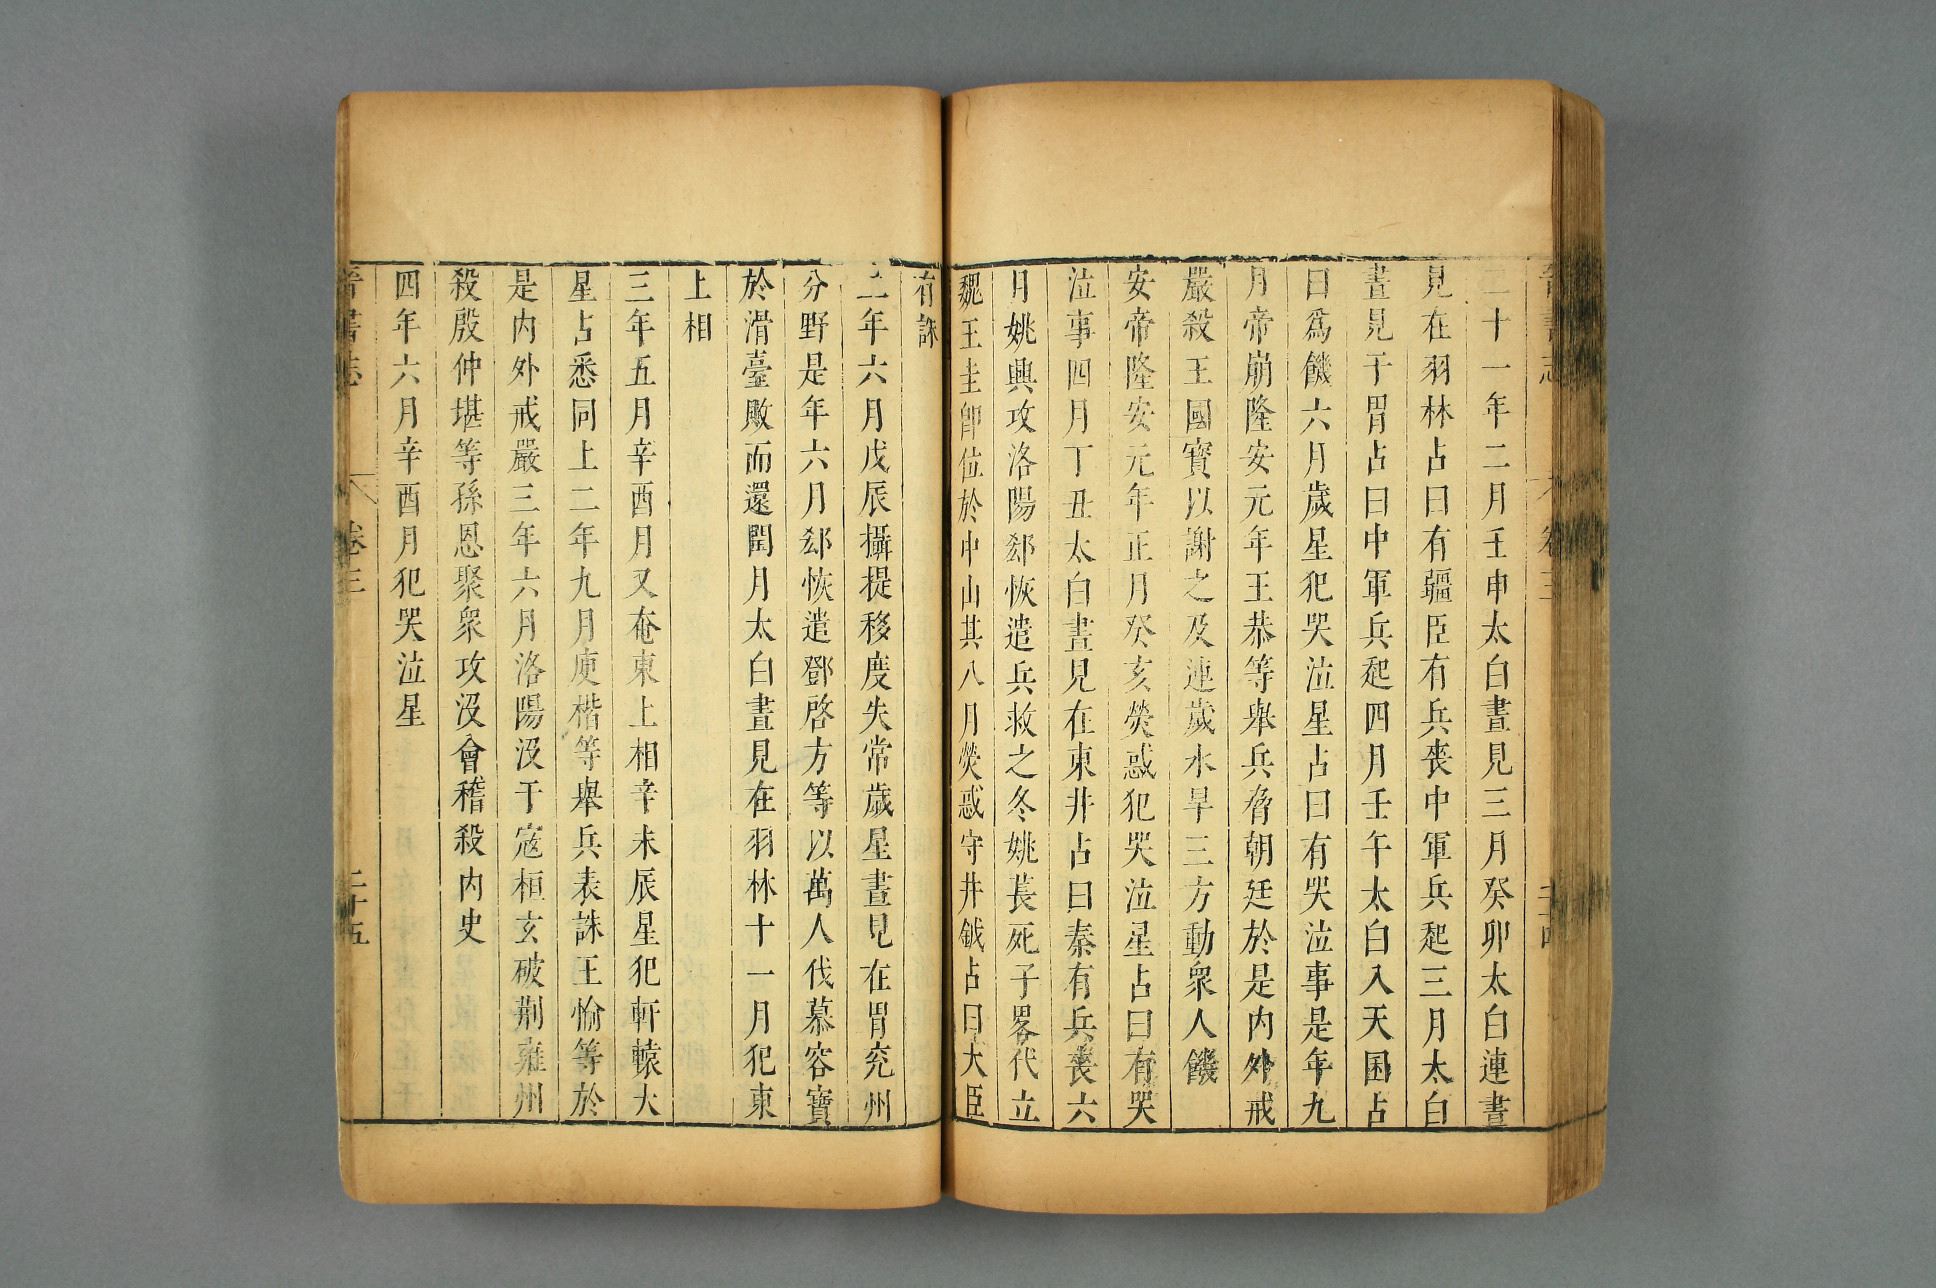 晉書志 卷三 二十四
二十一年二月壬申太白晝見三月癸卯太白連晝
見在羽林占曰有疆臣有兵喪中軍兵起三月太白
晝見于胃占曰中軍兵起四月壬午太白入天囷占
曰爲饑六月歲星犯哭泣星占曰有哭泣事是年九
月帝崩隆安元年王恭等舉兵脅朝廷於是內外戒
嚴殺王國寶以謝之及連歲水旱三方動衆人饑
安帝隆安元年正月癸亥熒惑犯哭泣星占曰有哭
泣事四月丁丑太白晝見在東井占曰秦有兵喪六
月姚興攻洛陽郄恢遣兵救之冬姚萇死子畧代立
魏王圭卽位於中山其八月熒惑守井鉞占曰大臣
有誅
二年六月戊辰攝提移度失常歲星晝見在胃兖州
分野是年六月郄恢遣鄧啓方等以萬人伐慕容寶
於滑臺敗而還閏月太白晝見在羽林十一月犯東
上相
三年五月辛酉月又奄東上相辛未辰星犯軒轅大
星占悉同上二年九月庾楷等舉兵表誅王愉等於
是內外戒嚴三年六月洛陽沒于寇桓玄破荆雍州
殺殷仲堪等孫恩聚衆攻沒會稽殺內史
四年六月辛酉月犯哭泣星
晉書志 卷三 二十五